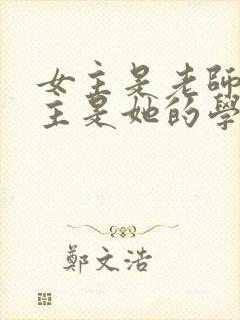 女主是老師
主是她的學
鄭文浩